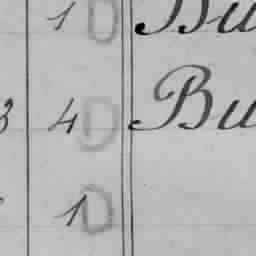 1 D Bu
3 4 D Bu
1 D